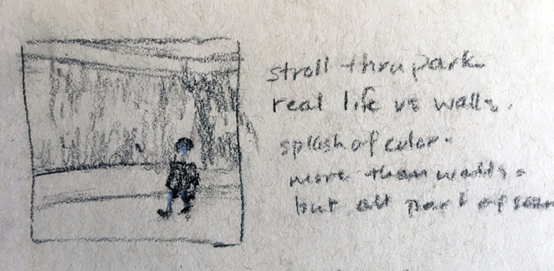 stroll thru park
real life vs walls.
splash of color.
more than walls.
but all part of